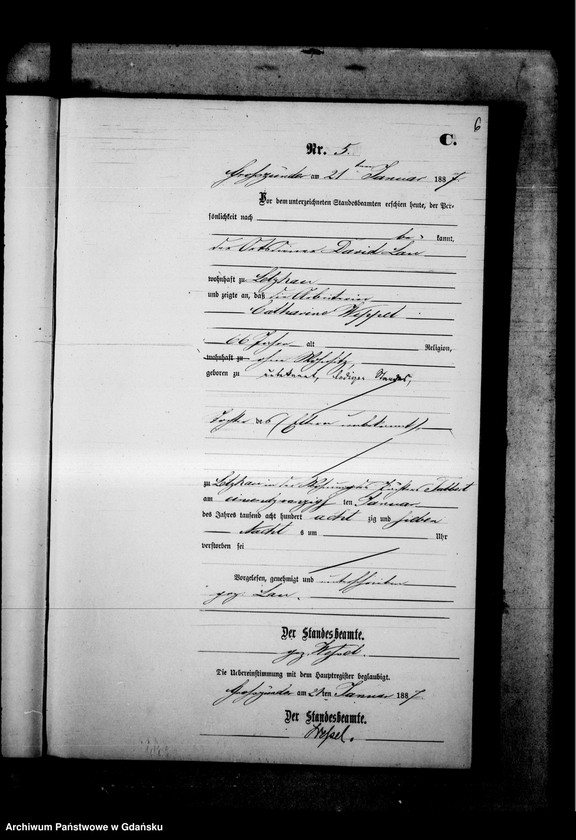 6
C.
Nr. 5.
Großzünder am 21 ten Januar 1887.
Vor dem unterzeichneten Standesbeamten erschien heute, der Per-
sönlichkeit nach
be- kannt,
der Ortsdiener David Lau
wohnhaft zu Letzkau
und zeigte an, daß die Arbeiterin
Catharina Weppelt
66 Jahre alt Religion,
wohnhaft zu ohne Wohnsitz,
geboren zu unbekannt, ledigen Standes,
Tochter des (Eltern unbekannt)
zu Letzkau in der Wohnung des
am einundzwanzig ten Januar
des Jahres tausend acht hundert acht zig und sieben
Nachts um Uhr
verstorben sei
Vorgelesen, genehmigt und unterschrieben
gez. Lau.
Der Standesbeamte.
gez. Wessel.
Die Uebereinstimmung mit dem Hauptregister beglaubigt.
Großzünder am 21 ten Januar 1887.
Der Standesbeamte.
Wessel.
Archiwum Państwowe w Gdańsku